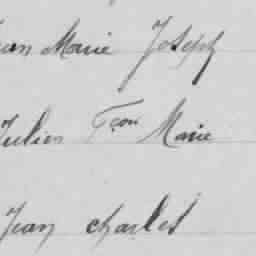 Jean Marie Joseph
Julien Fçois Marie
Jean charles